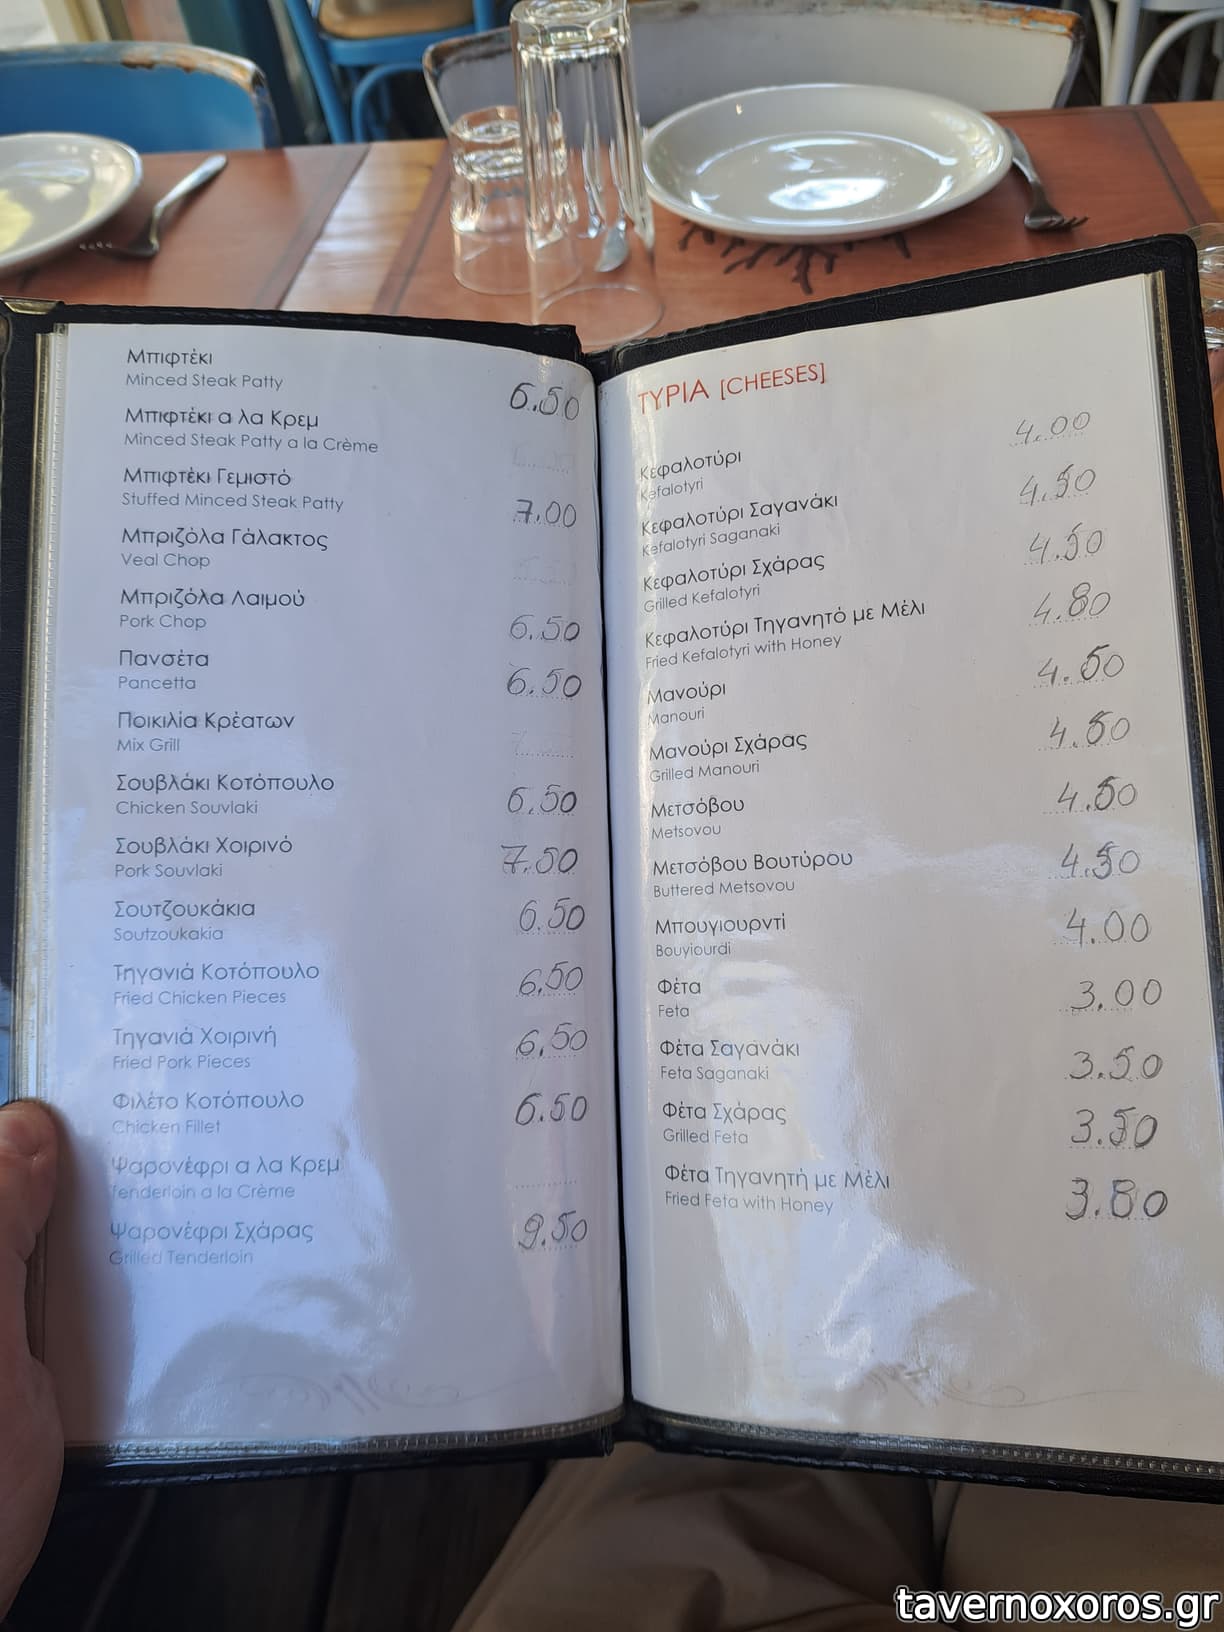 Μπιφτέκι
Minced Steak Patty 6.50
Μπιφτέκι α λα Κρεμ
Minced Steak Patty a la Crème
Μπιφτέκι Γεμιστό
Stuffed Minced Steak Patty 7.00
Μπριζόλα Γάλακτος
Veal Chop
Μπριζόλα Λαιμού
Pork Chop 6.50
Πανσέτα
Pancetta 6.50
Ποικιλία Κρέατων
Mix Grill
Σουβλάκι Κοτόπουλο
Chicken Souvlaki 6.50
Σουβλάκι Χοιρινό
Pork Souvlaki 7.50
Σουτζουκάκια
Soutzoukakia 6.50
Τηγανιά Κοτόπουλο
Fried Chicken Pieces 6.50
Τηγανιά Χοιρινή
Fried Pork Pieces 6.50
Φιλέτο Κοτόπουλο
Chicken Fillet 6.50
Ψαρονέφρι α λα Κρεμ
Tenderloin a la Crème
Ψαρονέφρι Σχάρας
Grilled Tenderloin 9.50
ΤΥΡΙΑ [CHEESES]
Κεφαλοτύρι
Kefalotyri 4.00
Κεφαλοτύρι Σαγανάκι
Kefalotyri Saganaki 4.50
Κεφαλοτύρι Σχάρας
Grilled Kefalotyri 4.50
Κεφαλοτύρι Τηγανητό με Μέλι
Fried Kefalotyri with Honey 4.80
Μανούρι
Manouri 4.50
Μανούρι Σχάρας
Grilled Manouri 4.50
Μετσόβου
Metsovou 4.50
Μετσόβου Βουτύρου
Buttered Metsovou 4.50
Μπουγιουρντί
Bouyiourdi 4.00
Φέτα
Feta 3.00
Φέτα Σαγανάκι
Feta Saganaki 3.50
Φέτα Σχάρας
Grilled Feta 3.50
Φέτα Τηγανητή με Μέλι
Fried Feta with Honey 3.80
tavernoxoros.gr